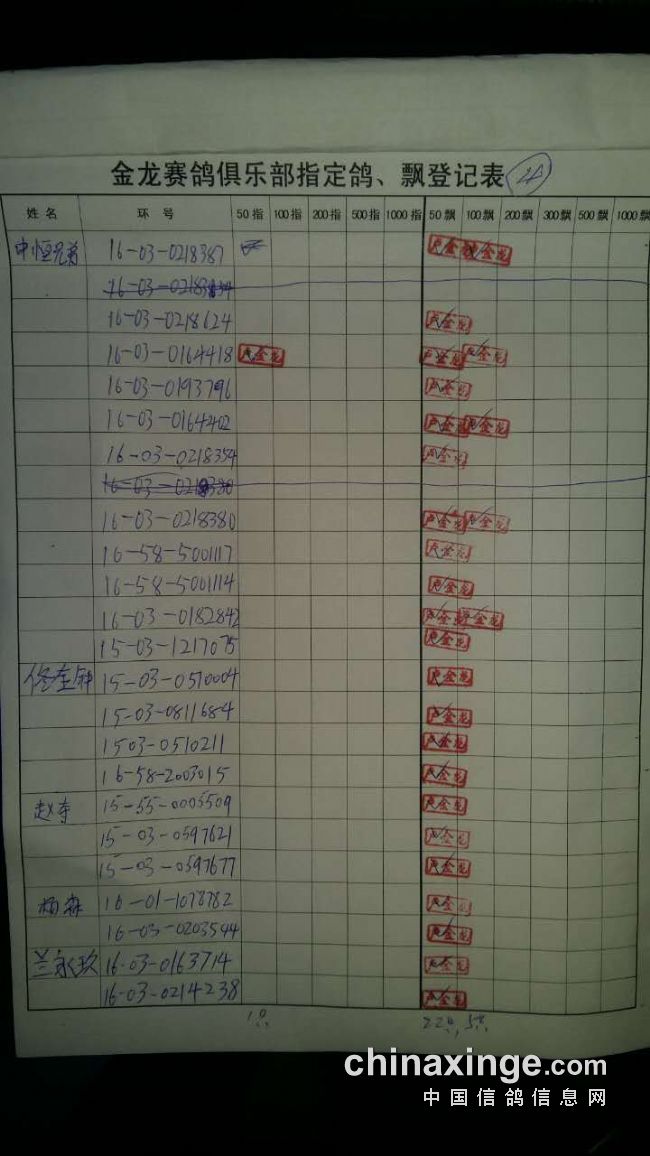 金龙赛鸽俱乐部指定鸽、飘登记表
姓名 环号 50指 100指 200指 500指 1000指 50飘 100飘 200飘 300飘 500飘 1000飘
中恒兄弟 16-03-0218387
16-03-0218624
16-03-0164418
16-03-0193796
16-03-0164202
16-03-0218354
16-03-0218380
16-03-0218380
16-58-5001117
16-58-5001114
16-03-0182842
15-03-1217075
15-03-0510004
15-03-0811684
1503-0510211
16-58-2003015
赵 15-55-0005509
15-03-0597621
15-03-0597677
杨森 16-01-1078782
16-03-0203544
兰永 16-03-0163714
16-03-0214238
chinaxinge.com
中国信鸽信息网